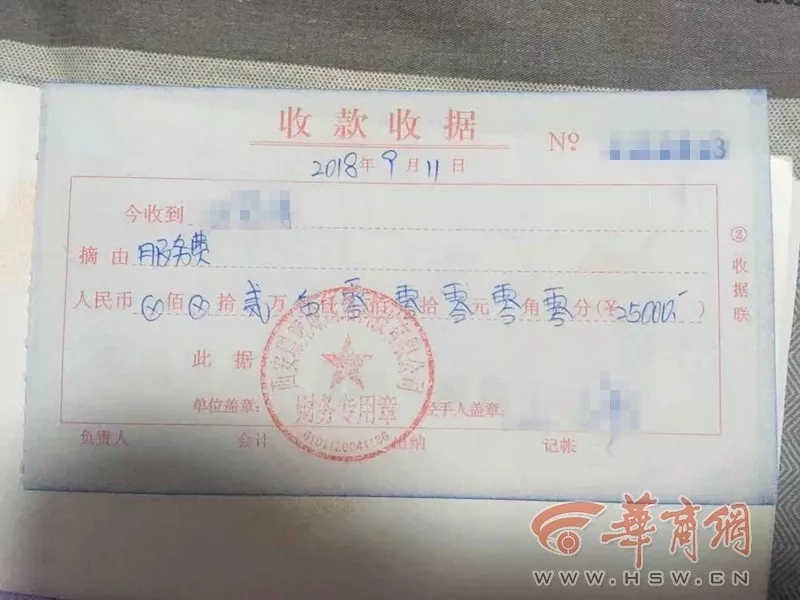 收款收据
No 3
2018年9月11日
今收到
摘由 服务费
人民币⊗佰⊗拾贰万伍仟零佰零拾零元零角零分(¥25000.-)
②收据联
此据
西安 有限公司
财务专用章
6101120041126
单位盖章: 经手人盖章:
负责人 会计 出纳 记帐
華商網
WWW.HSW.CN